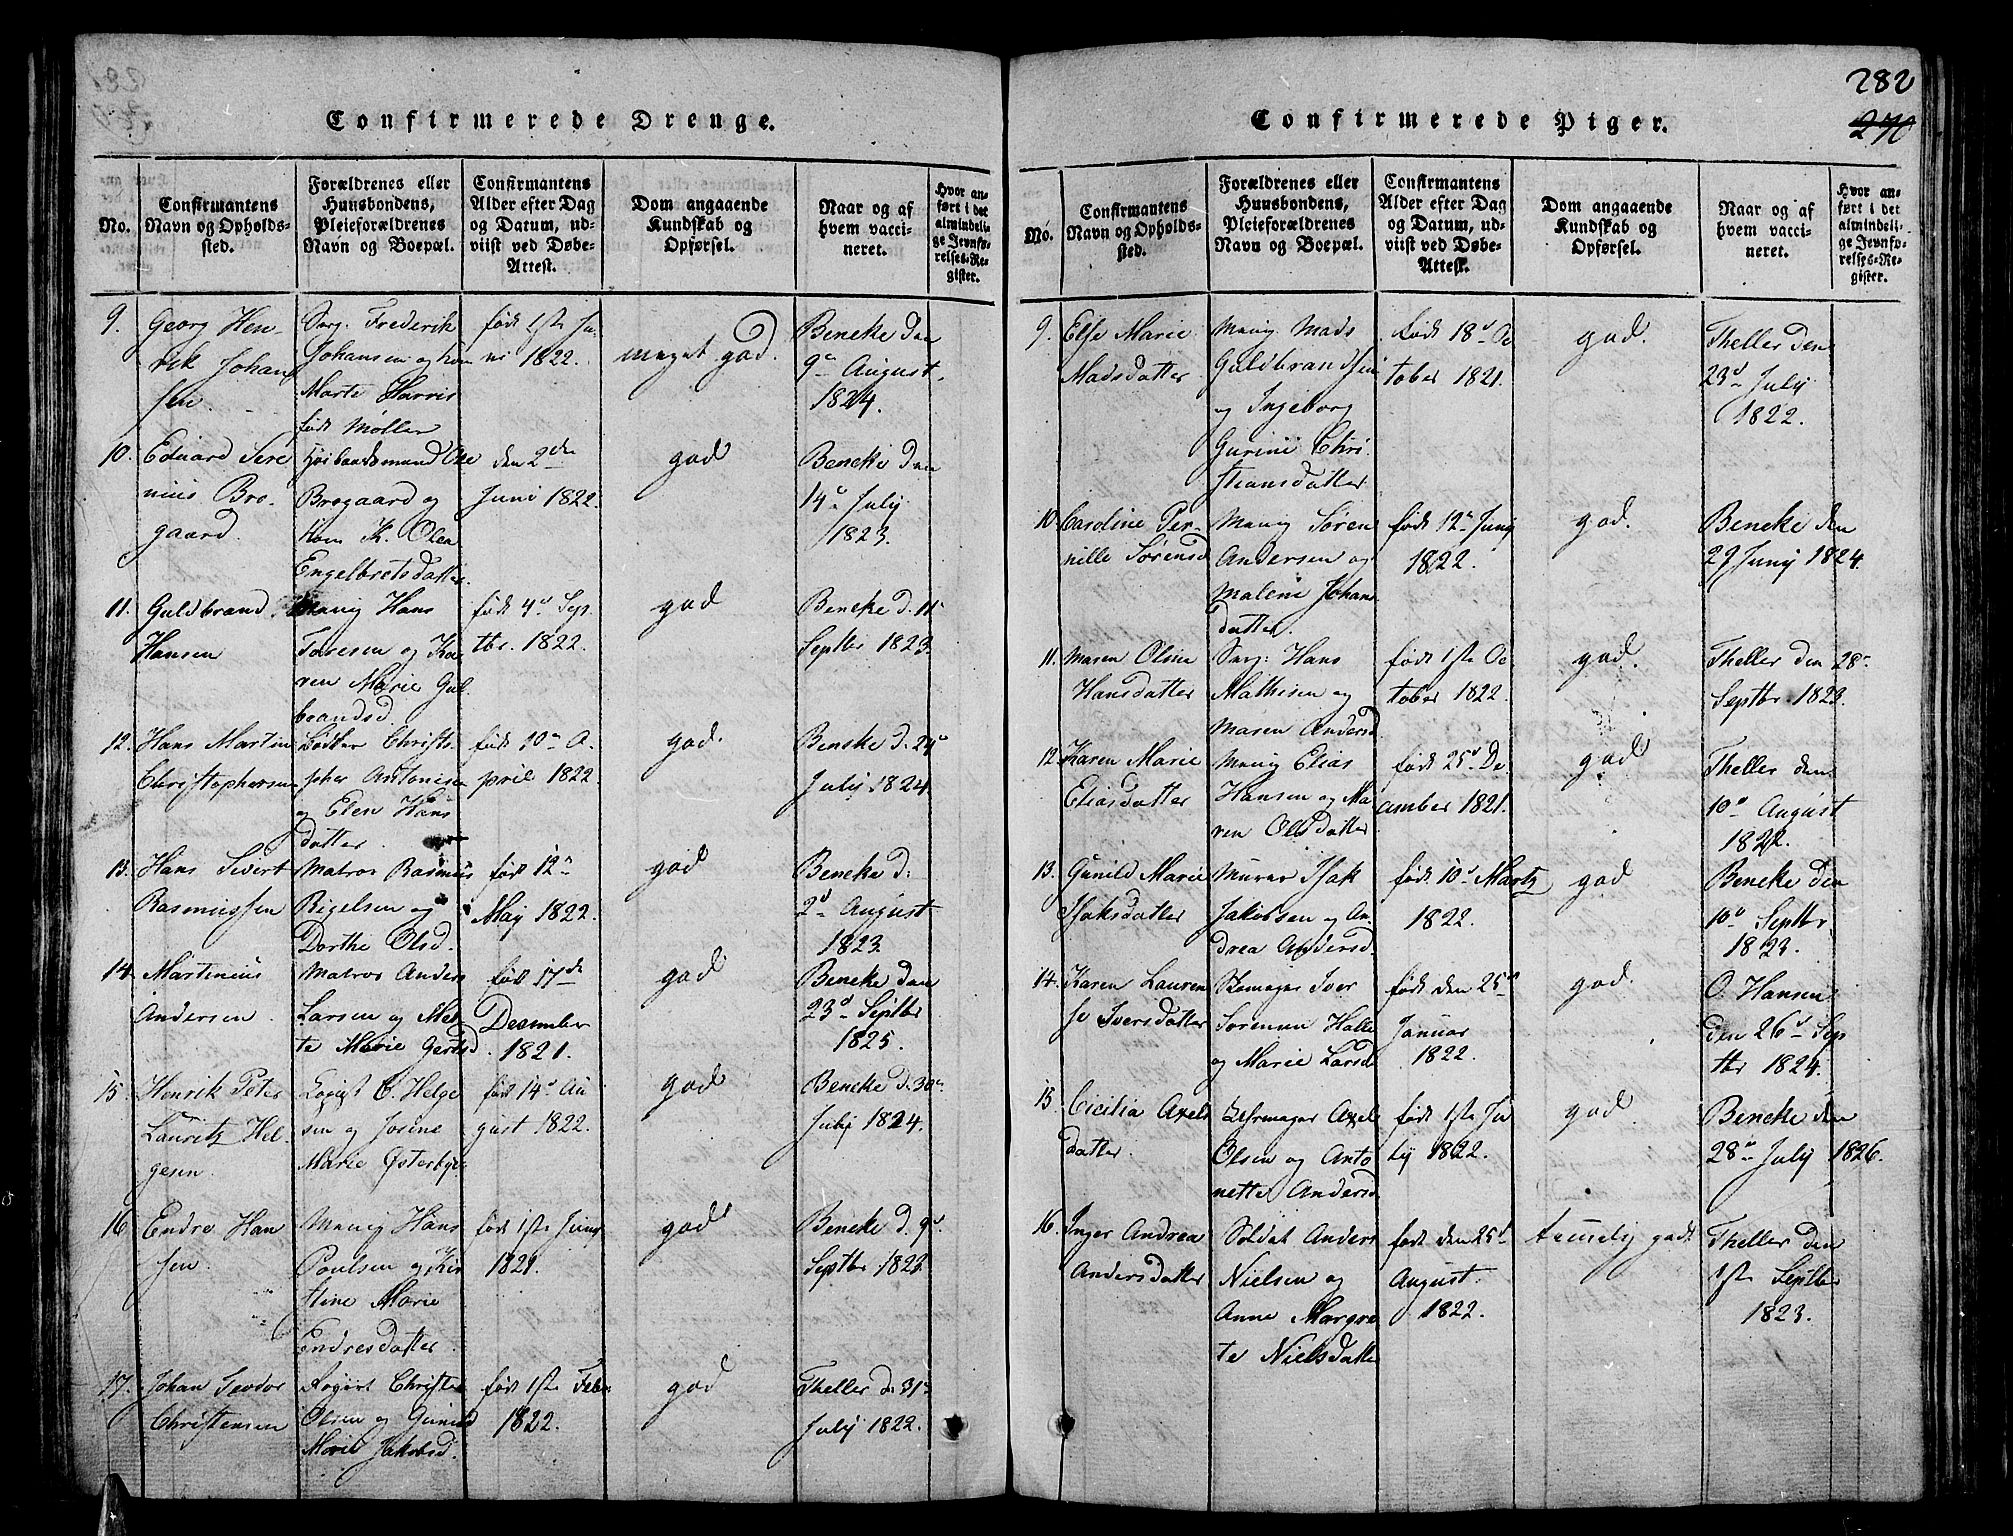 282
270
Confirmerede Drenge.
No.
Confirmantens Navn og Opholds-sted.
Forældrenes eller Huusbondens, Pleieforældrenes Navn og Boepæl.
Confirmantens Alder efter Dag og Datum, ud-viist ved Døbe-Attest.
Dom angaaende Kundskab og Opførsel.
Naar og af hvem vacci-neret.
Hvor an-ført i det almindeli-ge Jevnfø-relses-Re-gister.
9.
Georg Hen-
rik Johan
sen.
Frederik
Johansen og
Marte
født Møller
født 1ste Ju
ni 1822.
meget god.
Beneke den
9de August
1824.
10.
Eduard Sere
nius Bro-
gaard.
Brogaard og
Kone K. Olea
Engelbretsdatter.
den 2den
Juni 1822.
god
Beneke den
14de July
1823.
11.
Guldbrand
Hansen
Hans
Taresen og Ka
ren Marie Gul
brandsd.
født 4de Sep
tbr. 1822.
god
Beneke d. 11te
Septbr 1823.
12.
Hans Martin
Christophersen
Bødker Christo
pher Antonisen
og Elen Hans
datter.
født 10de A-
pril 1822.
god.
Beneke d. 24de
July 1824.
13.
Hans Sivert
Rasmussen
Matros Rasmus
Rigelsen og
Dorthe Olsd.
født 12te
May 1822.
god
Beneke d.
2de August
1823.
14.
Martinius
Andersen.
Matros Anders
Larsen og Met
te Marie Gertsd.
født 17de
December
1821.
god
Beneke den
23de Septbr
1825.
15.
Henrik Peter
Lauritz Hel-
gesen.
C. Helge
sen og Josine
Marie Østerbye
født 14de Au
gust 1822.
god
Beneke d. 30te
July 1824.
16
Endre Han
sen.
Hans
Poulsen og Kir
stine Marie
Endresdatter.
født 1ste Juny
1821.
god
Beneke d. 9de
Septbr 1822.
17.
Johan Teodor
Christensen
Christen
Olsen og Gunild
Marie Jakobsd.
født 1ste Febr.
1822.
god
Theller d. 31te
July 1822.
Confirmerede Piger.
No.
Confirmantens Navn og Opholds-sted.
Forældrenes eller Huusbondens, Pleieforældrenes Navn og Boepæl.
Confirmantens Alder efter Dag og Datum, ud-viist ved Døbe-Attest.
Dom angaaende Kundskab og Opførsel.
Naar og af hvem vacci-neret.
Hvor an-ført i det almindeli-ge Jevnfø-relses-Re-gister.
9.
Else Marie
Madsdatter.
Mads
Guldbrandsen
og Ingeborg
Gurine Chri-
stiansdatter
født 18de Oc
tober 1821.
god.
Theller den
23de July
1822.
10.
Caroline Per-
nille Sørensd.
Søren
Andersen og
Malene Johans
datter.
født 12te Juny
1822.
god.
Beneke den
29 Juny 1824.
11.
Maren Oline
Hansdatter
Hans
Mathisen og
Maren Andersd.
født 1ste Oc
tober 1822.
god.
Theller den 28de
Septbr 1823.
12.
Karen Marie
Eliasdatter
Elias
Hansen og Ma
ren Olsdatter
født 25de De
cember 1821.
god
Theller den
10de August
1822.
13.
Gunild Marie
Isaksdatter
Murer Isak
Jakobsen og An
drea Andersd.
født 10de Martz
1822.
god
Beneke den
10de Septbr
1823.
14.
Karen Lauren
se Iversdatter
Skomager Iver
Sørensen Halle
og Marie Larsd.
født den 25de
Januar
1822.
god.
O. Hansen
den 26de Sep
tbr 1824.
15.
Cicilia Axels
datter.
Axel
Olsen og Anto
nette Andersd.
født 1ste Ju
ly 1822.
god.
Beneke den
28de July 1826.
16.
Inger Andrea
Andersdatter
Soldat Anders
Nielsen og
Anne Margre
te Nielsdatter
født den 25de
August
1822.
temmelig godt
Theller den
1ste Septbr
1823.